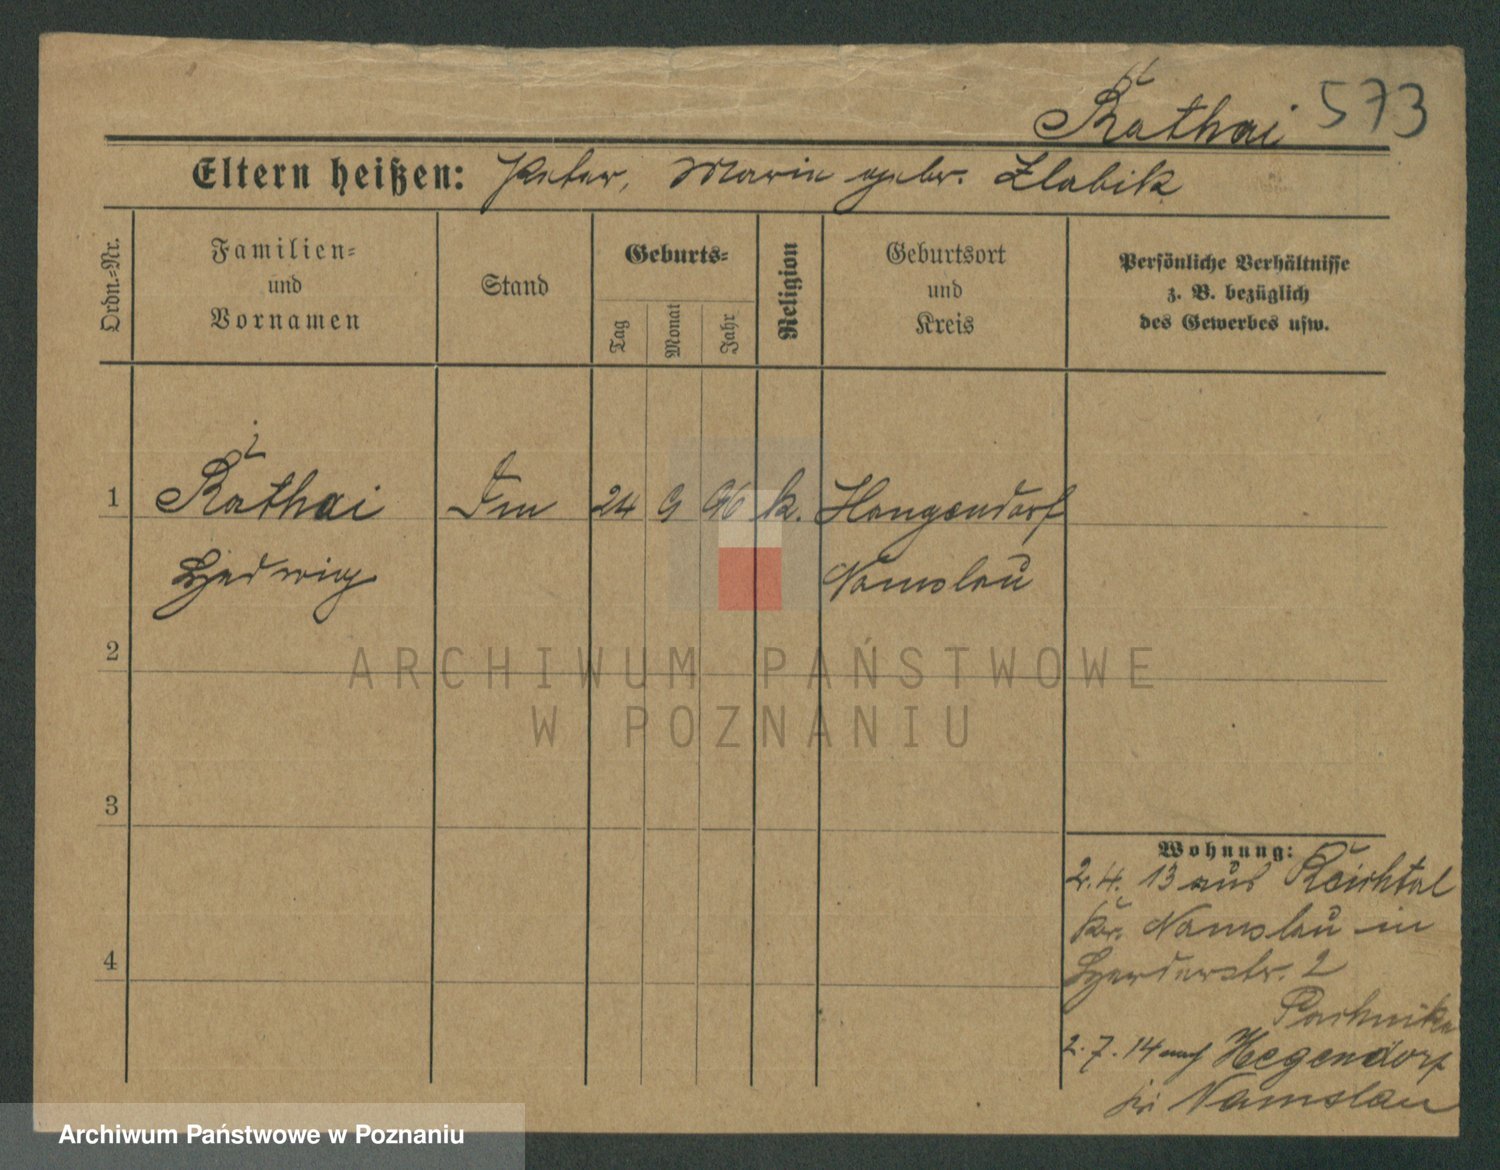 Rathai 573
Eltern heißen: Peter, Marie gebr. Zlabik
Ordn.=Nr.
Familien=
und
Vornamen
Stand
Geburts=
Tag
Monat
Jahr
Religion
Geburtsort
und
Kreis
Persönliche Verhältnisse
z. B. bezüglich
des Gewerbes usw.
1 Rathai 24 9 96 k.
Hedwig Namslau
2
3
4
Wohnung:
2.4.13 aus Reichtal
Kr. Namslau in
Herderstr. 2
2.7.14 nach Hegendorf
Namslau
ARCHIWUM PAŃSTWOWE
W POZNANIU
Archiwum Państwowe w Poznaniu